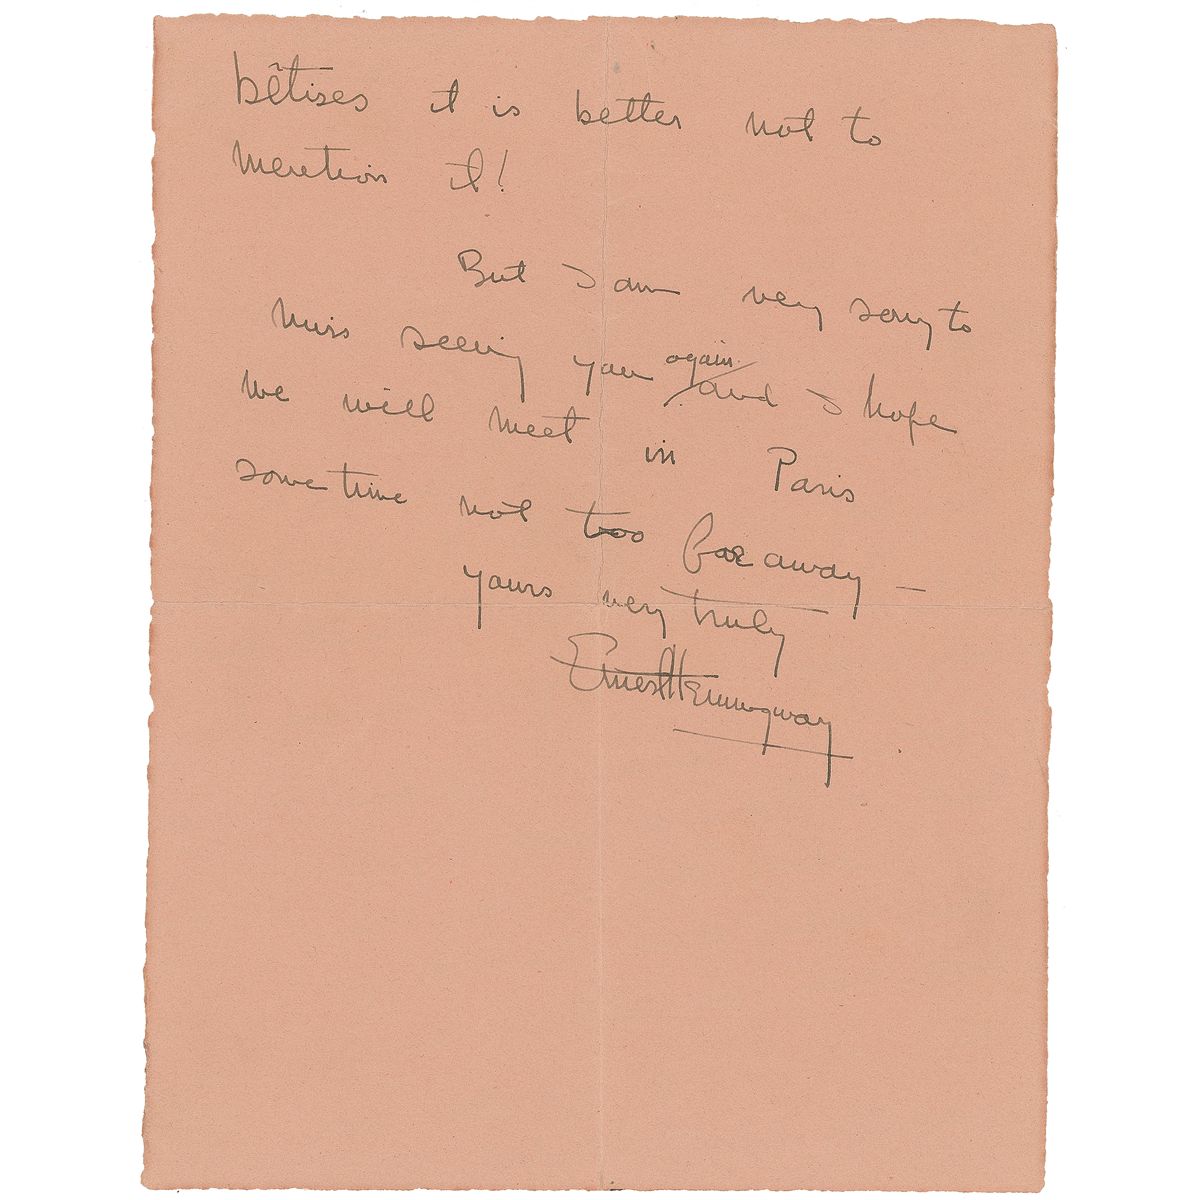 bêtises it is better not to
mention it!
But I am very sorry to
miss seeing you again and I hope
we will meet in Paris
sometime not too far away —
yours very truly
Ernest Hemingway